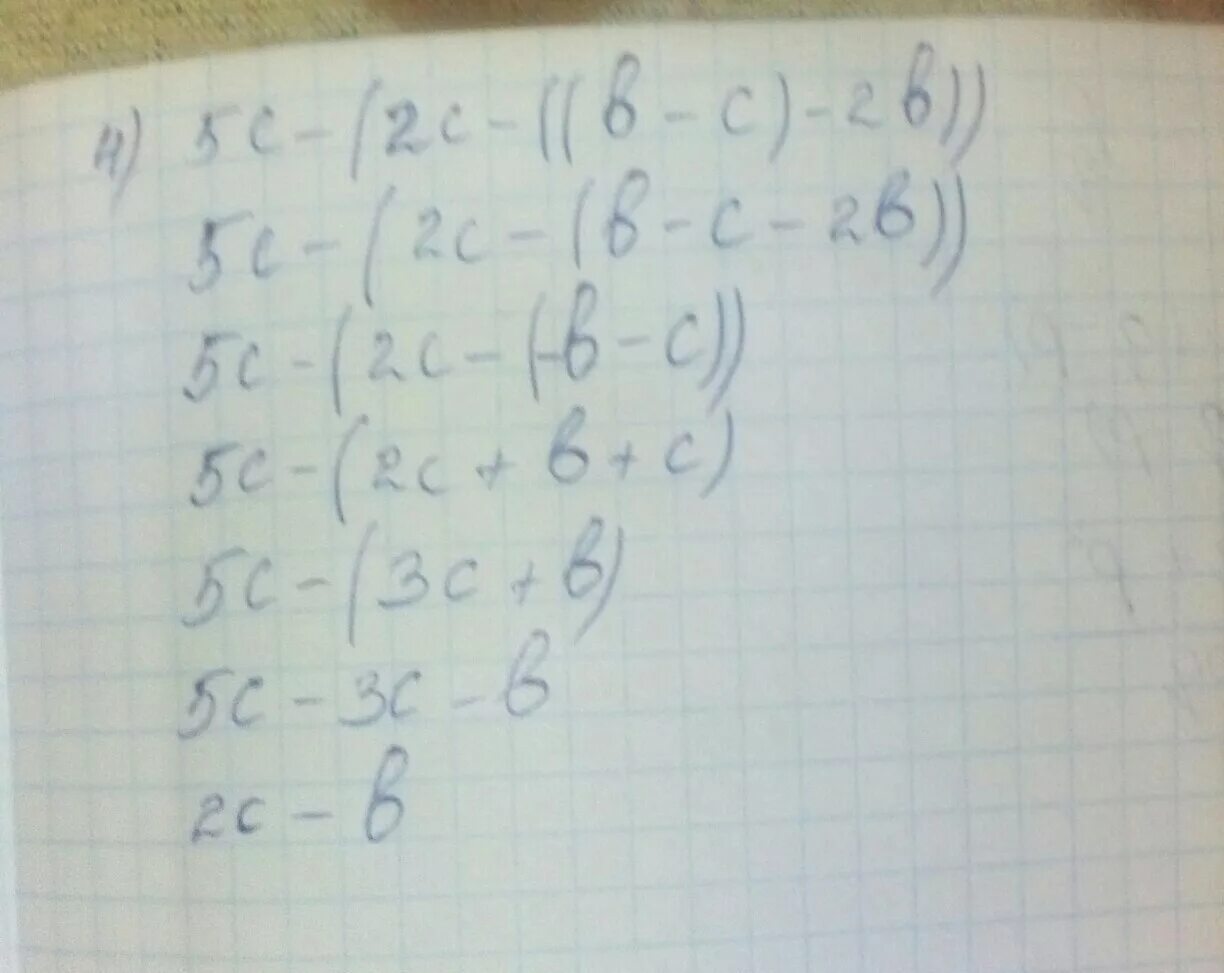 4) 5c - (2c - ((b - c) - 2b))
5c - (2c - (b - c - 2b))
5c - (2c - (-b - c))
5c - (2c + b + c)
5c - (3c + b)
5c - 3c - b
2c - b